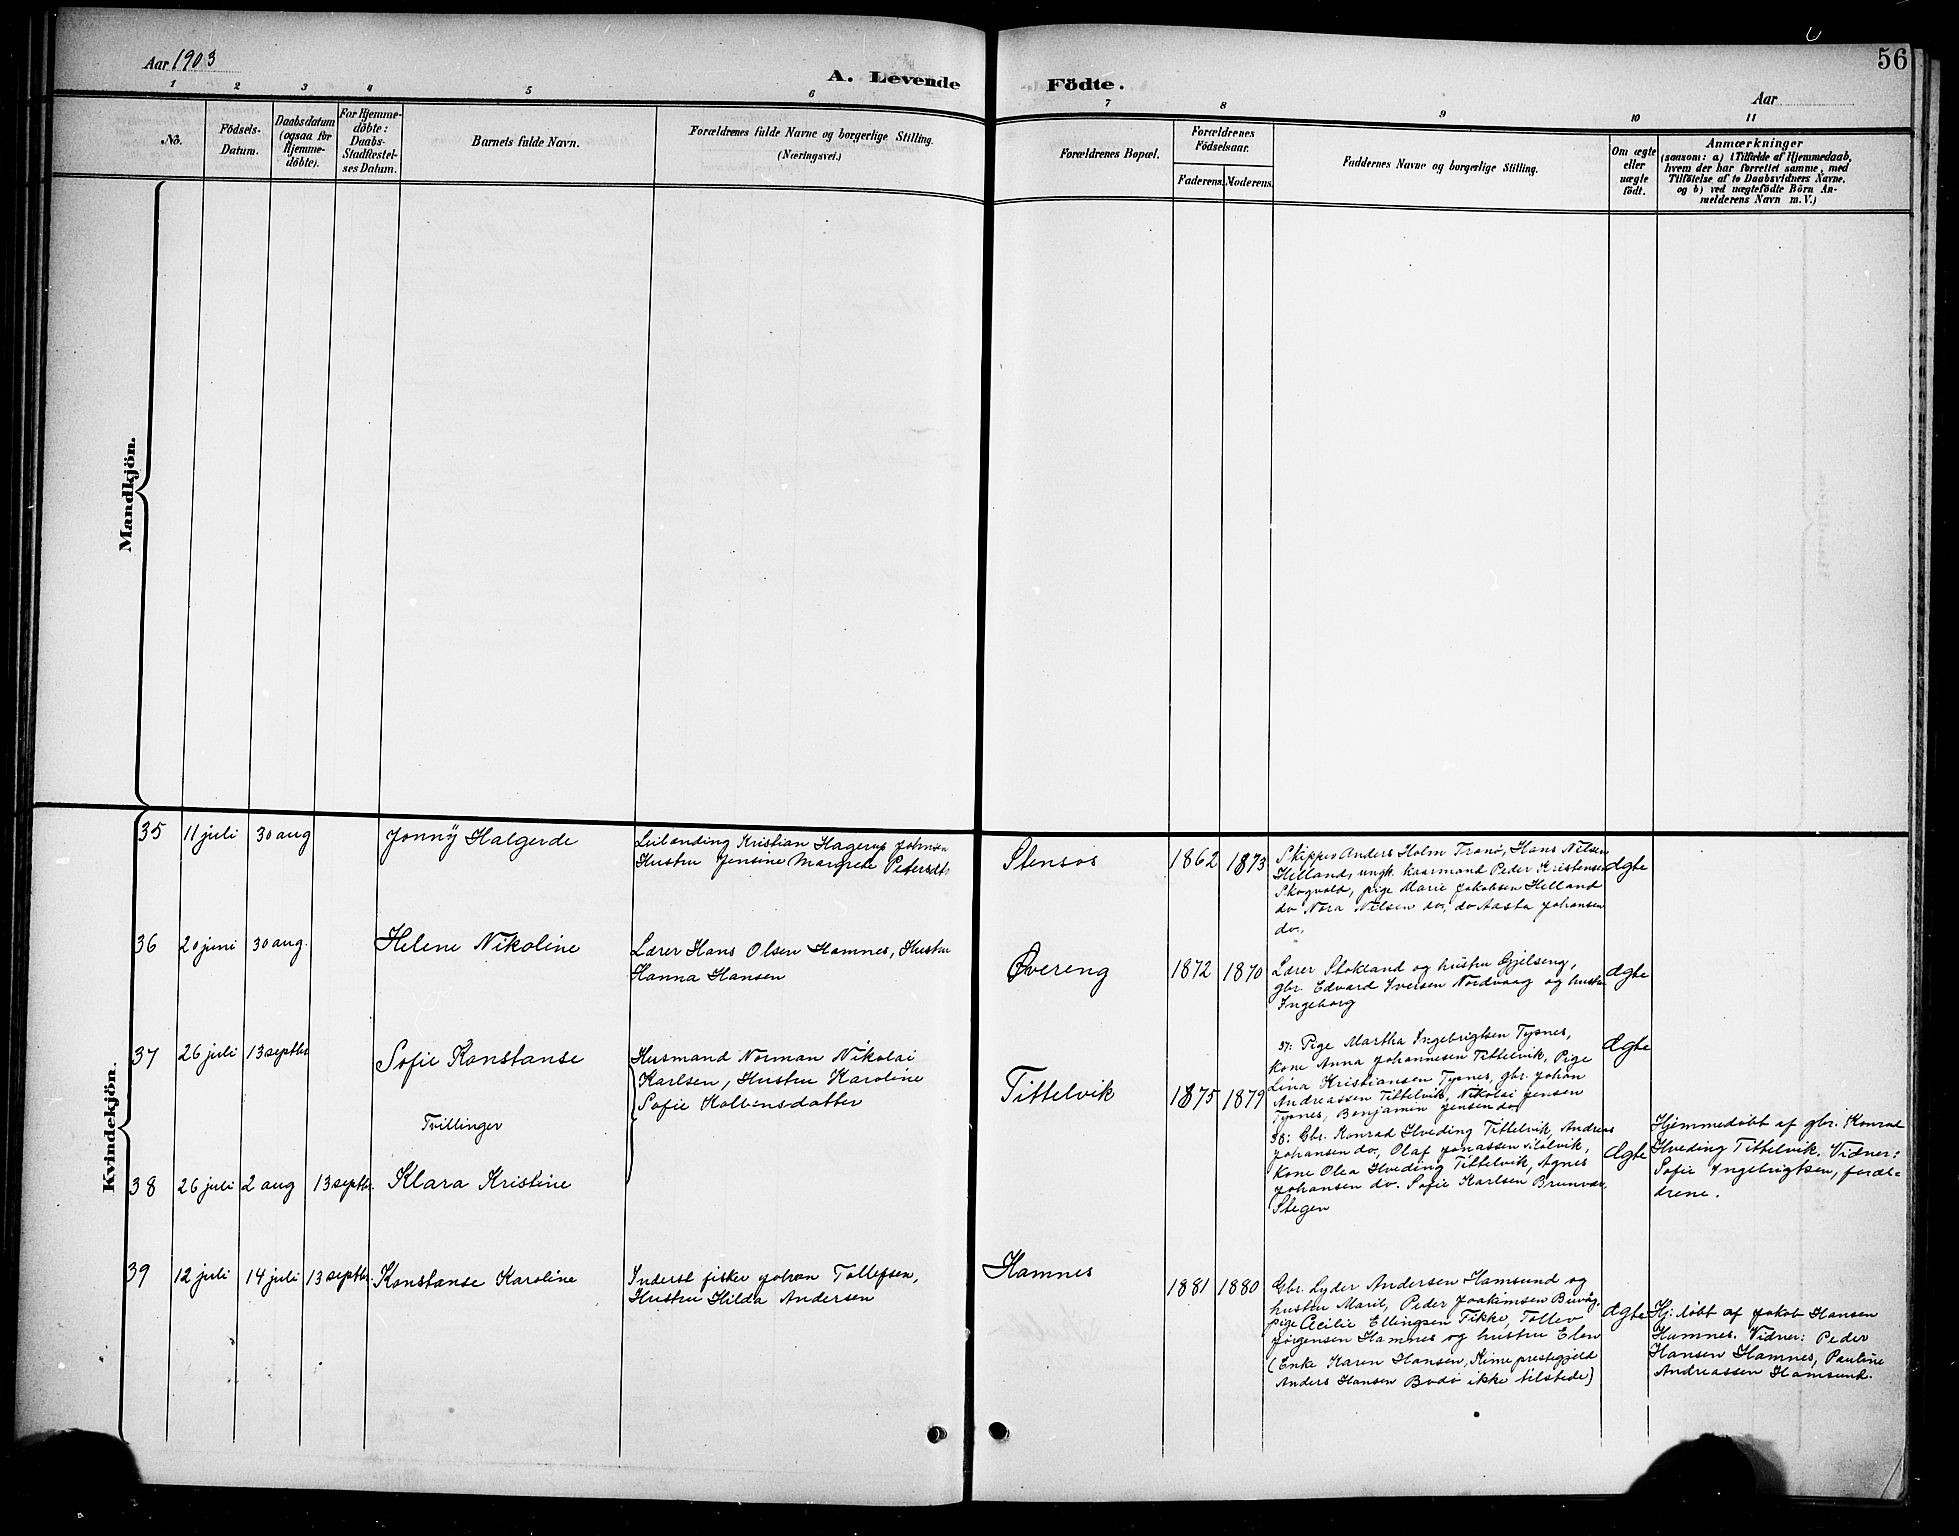 Aar 1903
A. Levende
Födte.
56
Aar
1 2 3 4 5 6 7 8 9 10 11
No.
Födsels-
Datum.
Daabsdatum
(ogsaa for
Hjemme-
döbte).
For Hjemme-
döbte:
Daabs-
Stadfæstel-
ses Datum.
Barnets fulde Navn.
Forældrenes fulde Navne og borgerlige Stilling.
(Næringsvei.)
Forældrenes Bopæl.
Forældrenes
Födselsaar.
Faderens. Moderens.
Faddernes Navne og borgerlige Stilling.
Om ægte
eller
uægte
födt.
Anmærkninger
(saasom: a) i Tilfælde af Hjemmedaab,
hvem der har forrettet samme, med
Tilföielse af to Daabsvidners Navne.
og b) ved uægtefödte Börn An-
melderens Navn m. V.)
Mandkjön.
Kvindekjön.
35 11 juli 30 aug
Jonny Halgerde
Leilending Kristian Hagerup Johnsen
Hustru Jensine Margrete Petersdtr
Stensos
1862 1873
Skipper Anders Holm Tranö, Hans Nilsen
Helland, ungk. kaarmand Peder Kristensen
Skogvold, pige Marie Jakobsen Helland
do Nora Nilsen do, do Aasta Johansen
do.
ægte
36 20 juni 30 aug.
Helene Nikoline
Lærer Hans Olsen Hamnes, Hustru
Hanna Hansen
Øvereng
1872 1870
Lærer Stokland og hustru Gjelseng,
gbr. Edvard Iversen Nordvaag og hustru
Ingeborg
ægte
37 26 juli 13 septbr
Sofie Konstanse
Husmand Norman Nikolai
Karlsen, Hustru Karoline
Sofie Kolbensdatter
Tittelvik
1875 1879
37: Pige Martha Ingebrigtsen Tysnes,
kone Anna Johannesen Tittelvik, Pige
Lina Kristiansen Tysnes, gbr. Johan
Andreassen Tittelvik, Nikolai Jensen
Tysnes, Benjamin Jensen do
ægte
Tvillinger
38 26 juli 2 aug 13 septbr.
Klara Kristine
38: Gbr. Konrad Hveding Tittelvik, Andreas
Johansen do, Olaf Jonassen
Kone Olea Hveding Tittelvik, Agnes
Johansen do. Sofie Karlsen Brunvær,
Stegen
ægte
Hjemmedøbt af gbr. Konrad
Hveding Tittelvik. Vidner:
Sofie Ingebrigtsen, foræl-
drene.
39 12 juli 14 juli 13 septbr.
Konstanse Karoline
Inderst fisker Johan Tollefsen,
Hustru Hilda Andersen
Hamnes
1881 1880
Gbr. Lyder Andersen Hamsund og
hustru Marit, Peder Joakimsen Buvåg,
pige Cecilie Ellingsen Tikke, Tollev
Jørgensen Hamnes og hustru Elen
(Enke Karen Hansen, Kime prestegjeld
Anders Hansen Bodø ikke tilstede)
ægte
Hj: døbt af Jakob Hansen
Humnes. Vidner: Peder
Hansen Hamnes, Pauline
Andreassen Hamsund.